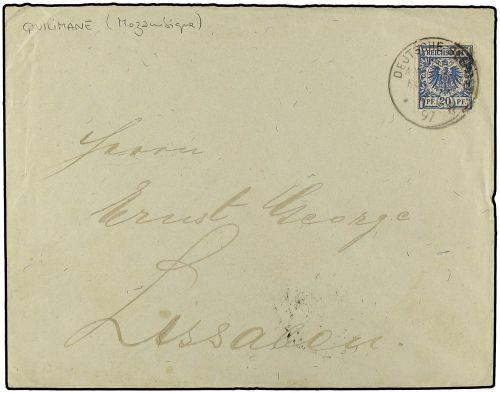 QUILIMANE (Mozambique)
REICHSPOST
PF. 20 PF.
DEUTSCHE
97
Herrn
Ernst George
Lissabon.